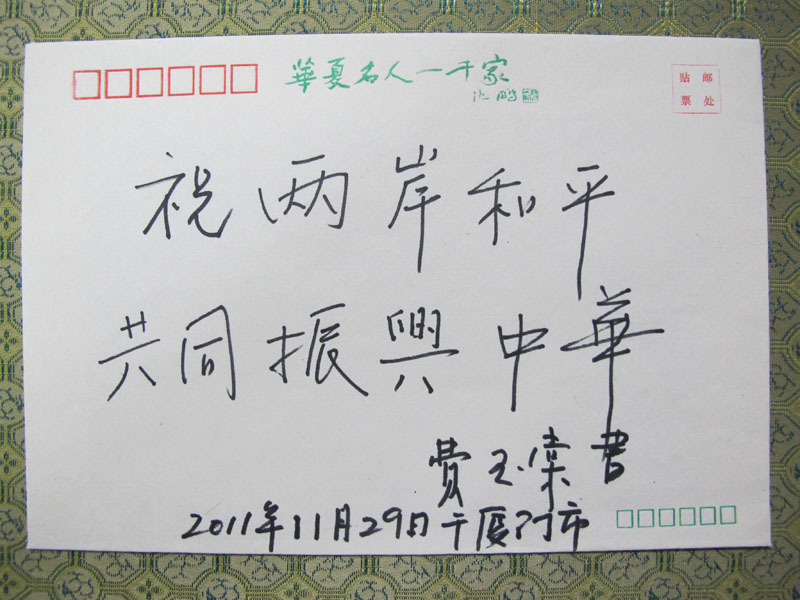 華夏名人一千家
沈鹏
贴邮
票处
祝两岸和平
共同振興中華
費玉棠書
2011年11月29日于厦门市